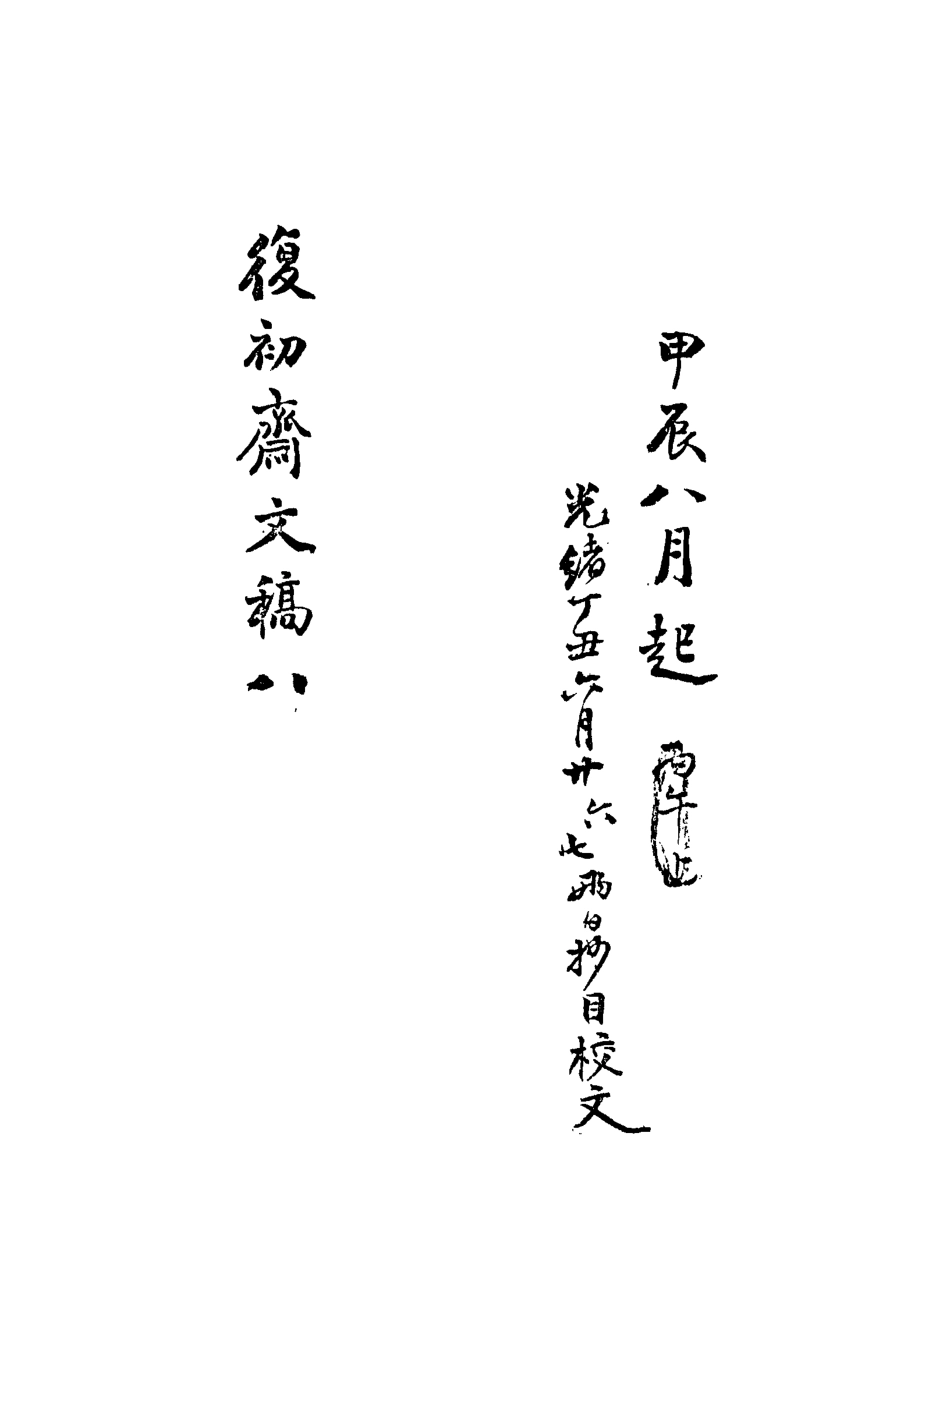 甲辰八月起 丙午止
光緒丁丑六月廿六七兩日抄目校文
復初齋文稿八